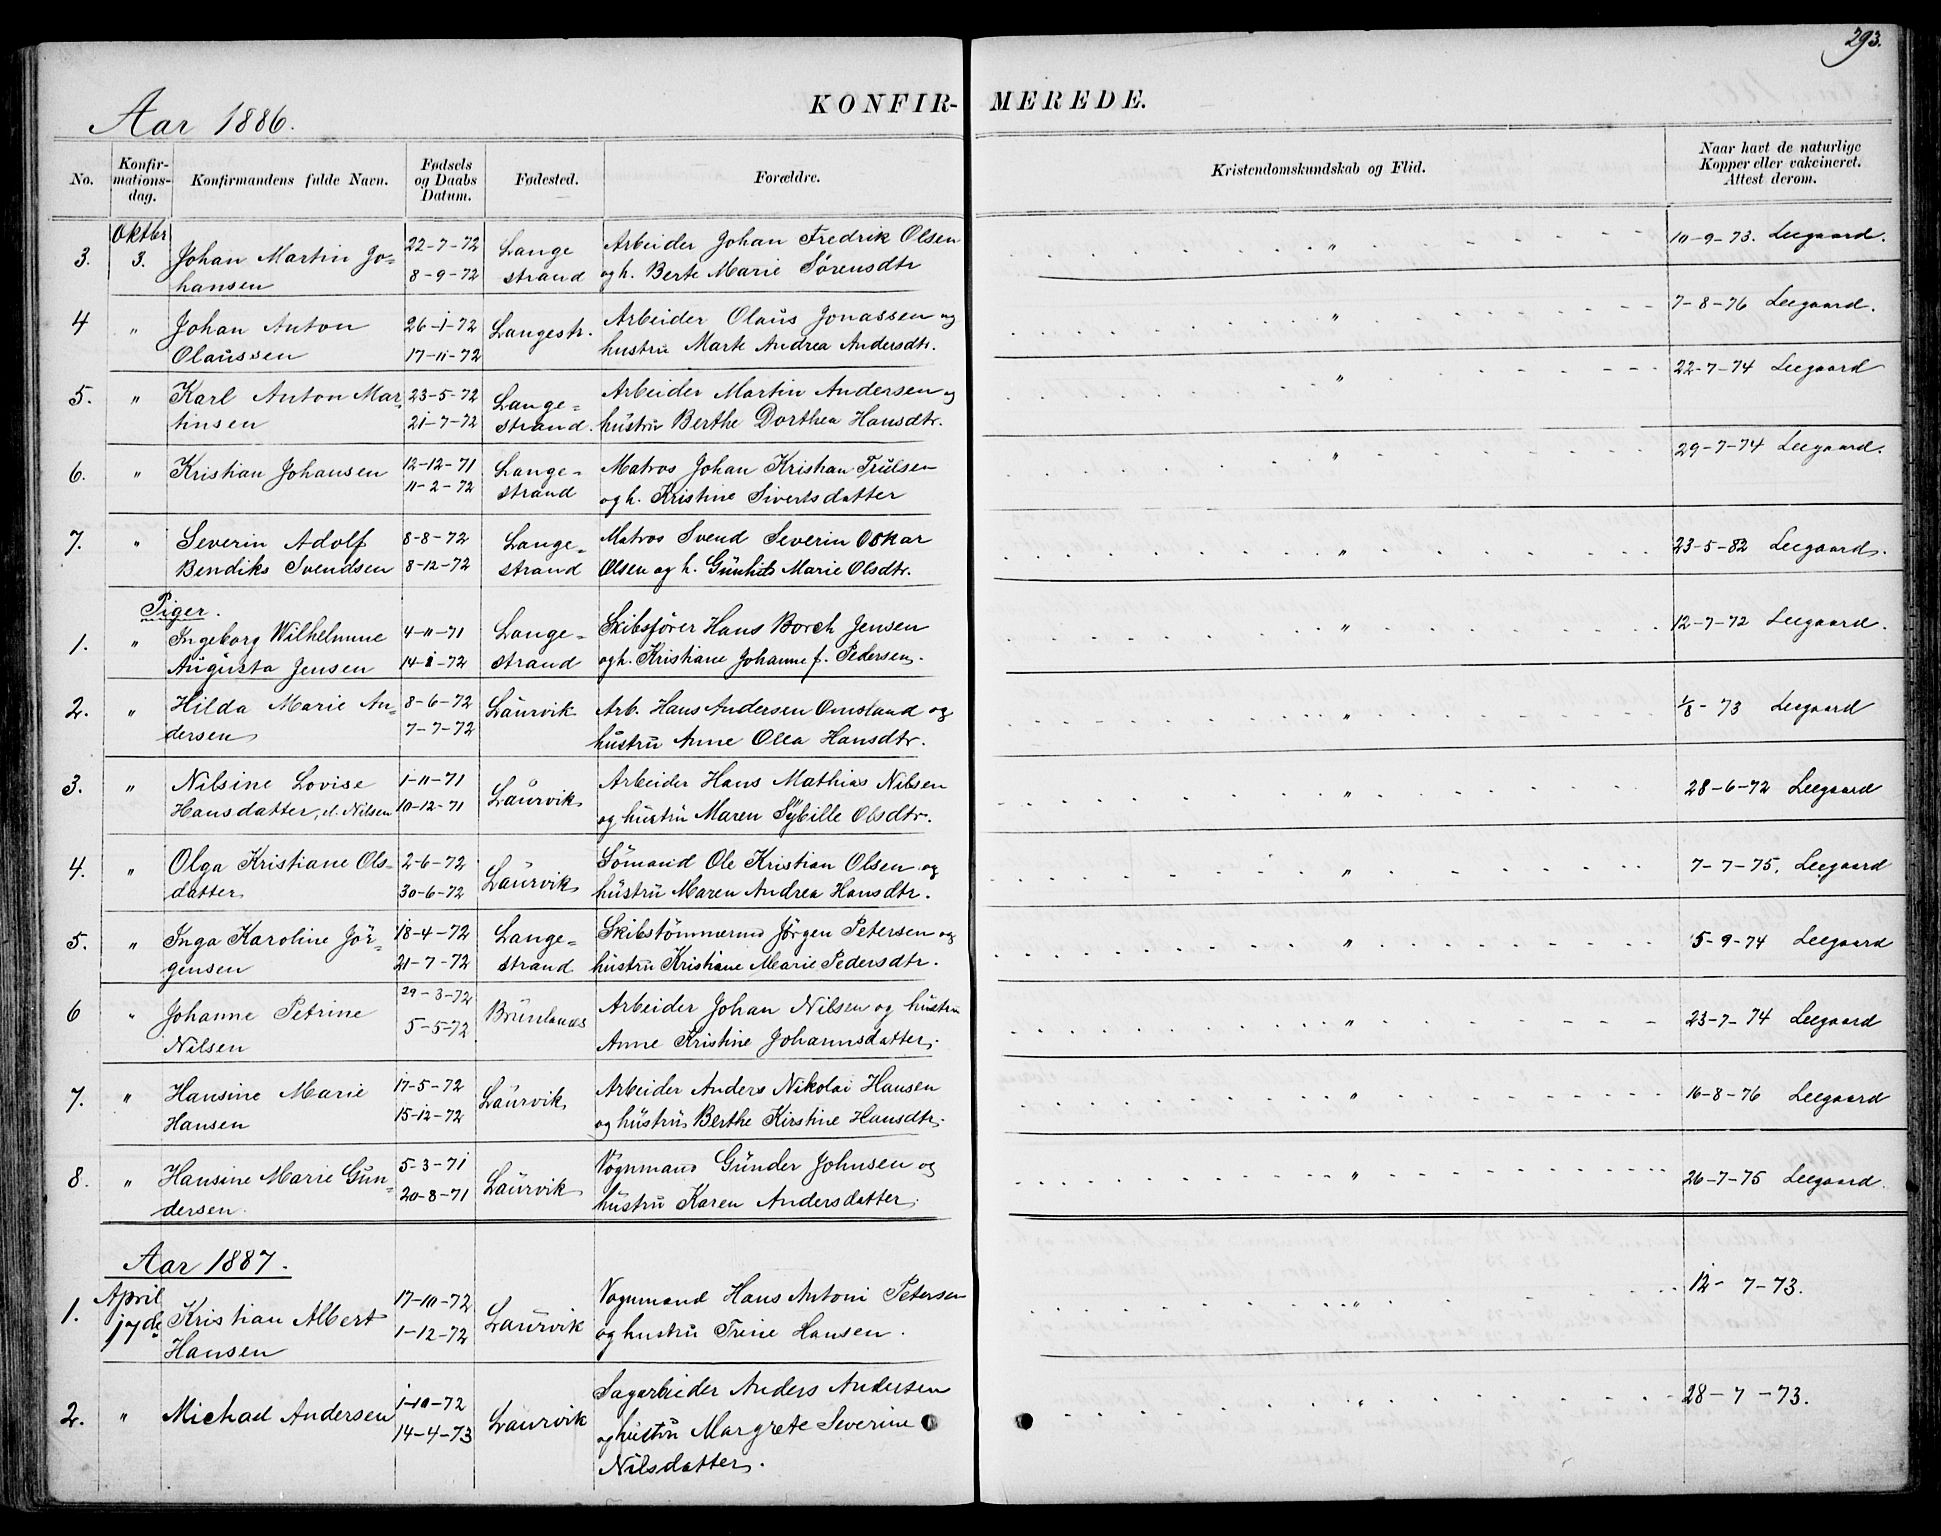 293.
Aar 1886.
KONFIR- MEREDE.
No.
Konfir-
mations-
dag.
Konfirmandens fulde Navn.
Fødsels
og Daabs
Datum.
Fødested.
Forældre.
Kristendomskundskab og Flid.
Naar havt de naturlige
Kopper eller vakcineret.
Attest derom.
Oktbr
3. 3. Johan Martin Jo- 22-7-72 Lange Arbeider Johan Fredrik Olsen " 10-9-73. Leegaard.
hansen 8-9-72 strand og h. Berte Marie Sørensdtr
4 " Johan Anton 26-1-72 Langestr. Arbeider Olaus Jonassen og " 7-8-76 Leegaard.
Olaussen 17-11-72 hustru Marte Andrea Andersdtr.
5. " Karl Anton Mar- 23-5-72 Lange- Arbeider Martin Andersen og " 22-7-74 Leegaard
tinsen 21-7-72 strand. hustru Berthe Dorthea Hansdtr.
6. " Kristian Johansen 12-12-71 Lange- Matros Johan Kristian Trulsen " 29-7-74 Leegaard.
11-2-72 strand og h. Kristine Sivertsdatter
7. " Severin Adolf 8-8-72 Lange- Matros Svend Severin Oskar " 23-5-82 Leegaard.
Bendiks Svendsen 8-12-72 strand Olsen og h. Gunhild Marie Olsdtr.
Piger.
1. " Ingeborg Wilhelmine 4-11-71 Lange- Skibsfører Hans Borch Jensen " 12-7-72 Leegaard.
Augusta Jensen 14-1-72 strand og h. Kristiane Johanne f. Pedersen.
2. " Hilda Marie An- 8-6-72 Laurvik Arb. Hans Andersen Omsland og " 1/8-73 Leegaard
dersen 7-7-72 hustru Anne Olea Hansdtr.
3. " Nilsine Lovise 1-11-71 Laurvik Arbeider Hans Mathias Nilsen " 28-6-72 Leegaard
Hansdatter, el. Nilsen 10-12-71 og hustru Maren Sybille Olsdtr.
4. " Olga Kristiane Ols- 2-6-72 Laurvik Sømand Ole Kristian Olsen og " 7-7-75. Leegaard
datter 30-6-72 hustru Maren Andrea Hansdtr.
5. " Inga Karoline Jør- 18-4-72 Lange- Skibstømmermd Jørgen Petersen og " 5-9-74 Leegaard
gensen 21-7-72 strand hustru Kristiane Marie Pedersdtr.
6 " Johanne Petrine 29-3-72 Brunlanes Arbeider Johan Nilsen og hustru " 23-7-74 Leegaard
Nilsen 5-5-72 Anne Kristine Johannsdatter.
7. " Hansine Marie 17-5-72 Laurvik Arbeider Anders Nikolai Hansen " 16-8-76 Leegaard
Hansen 15-12-72 og hustru Berthe Kirstine Hansdtr.
8. " Hansine Marie Gun- 5-3-71 Laurvik Vognmand Gunder Johnsen og " 26-7-75 Leegaard.
dersen. 20-8-71 hustru Karen Andersdatter.
Aar 1887.
April
1. 17de Kristian Albert 17-10-72 Laurvik Vognmand Hans Antoni Petersen " 12-7-73.
Hansen 1-12-72 og hustru Trine Hansen.
2. " Michael Andersen 1-10-72 Laurvik Sagarbeider Anders Andersen " 28-7-73.
14-4-73 og hustru Margrete Severine
Nilsdatter.